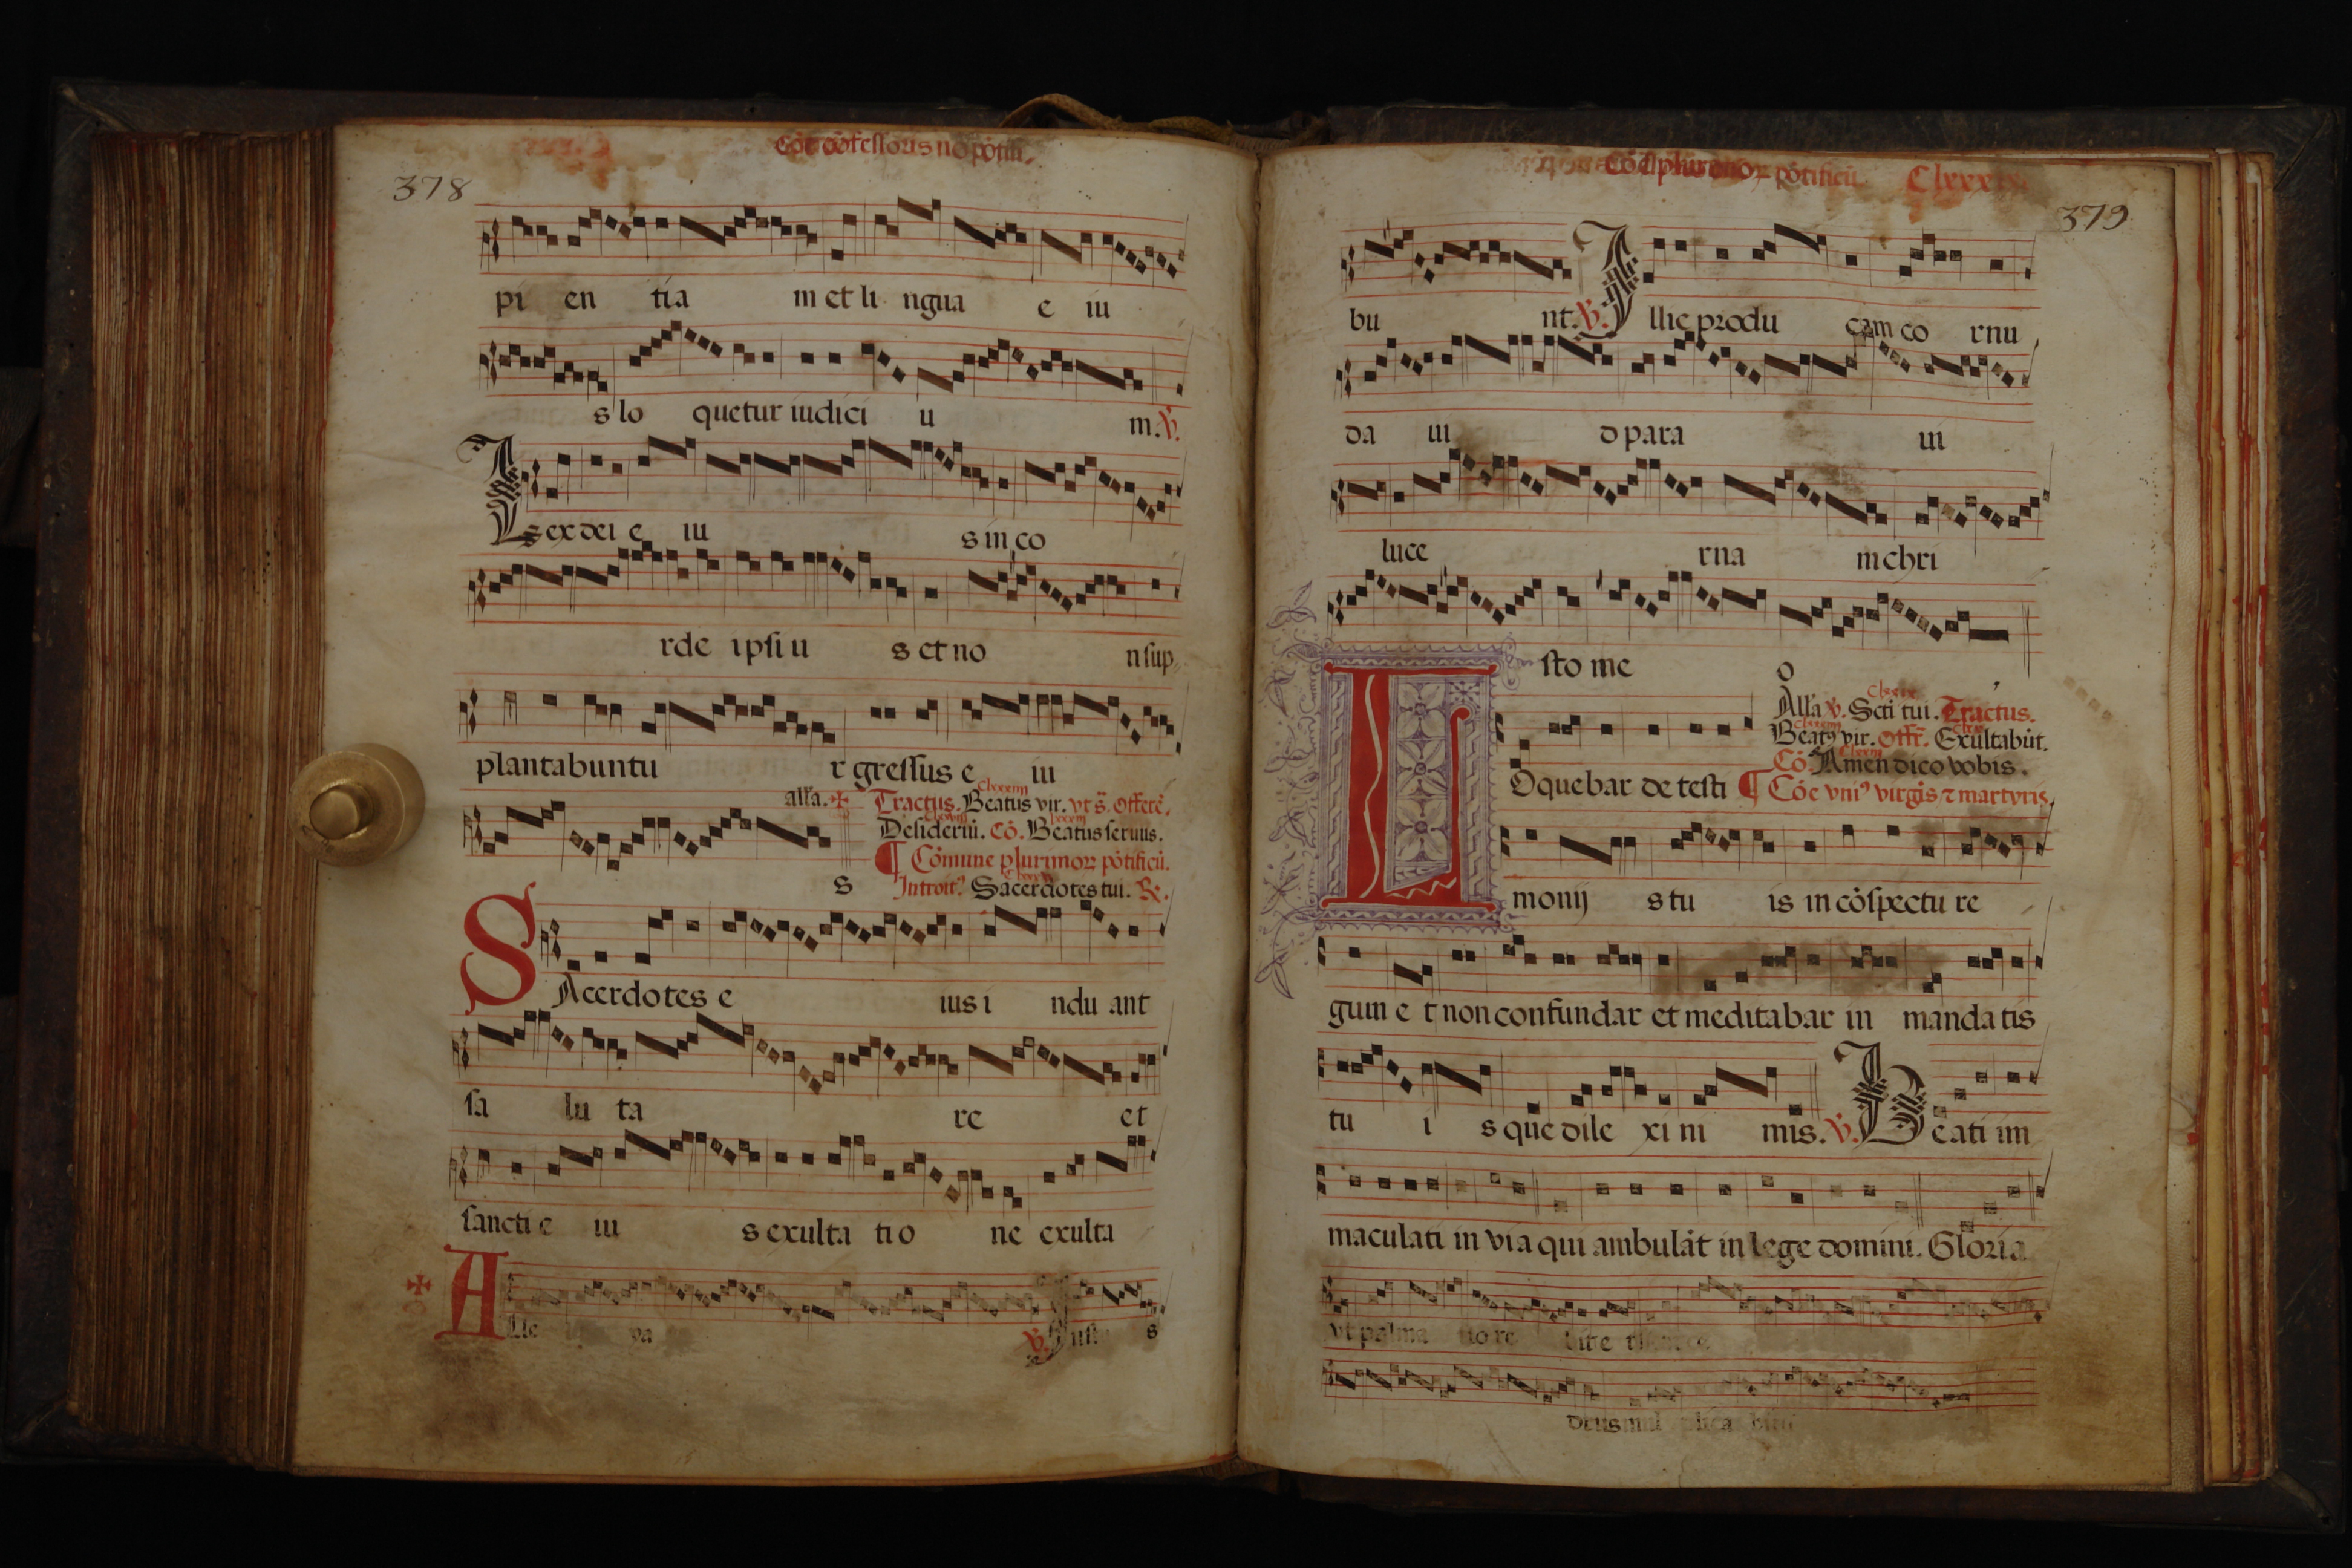 Cōe cōfessoris nō pōtifi.
378
pi en tia m et li ngua e iu
s lo quetur iudici u m. ℣.
Lex dei e iu s in co
rde ipsi u s et no n sup
plantabuntu r gressus e iu
s
alla. ✠ Tractus. Beatus vir. vt s̄. Offere̅.
Desideriū. Cō. Beatus seruus.
¶ Cōmune plurimoꝝ pōtificū.
Introit⁹. Sacerdotes tui. ℟.
SAcerdotes e ius i ndu ant
sa lu ta re et
sancti e iu s exulta ti o ne exulta
✠ Alle ℣. Iust s
Cōe plurimoꝝ pōtificū
379
bu nt. ℣. Illic produ cam co rnu
da ui d para ui
luce rna m chri
sto me o
Alla ℣. Scti tui. Tractus.
Beat⁹ vir. Offe̅. Exultabūt.
Cō. Amen dico vobis.
¶ Cōe vni⁹ virgīs ⁊ martyris.
LOquebar de testi
monij s tu is in cōspectu re
gum e t non confundar et meditabar in mandatis
tu i s que dile xi ni mis. ℣. Beati im
maculati in via qui ambulāt in lege domini. Gloria
vt palma flo re bit